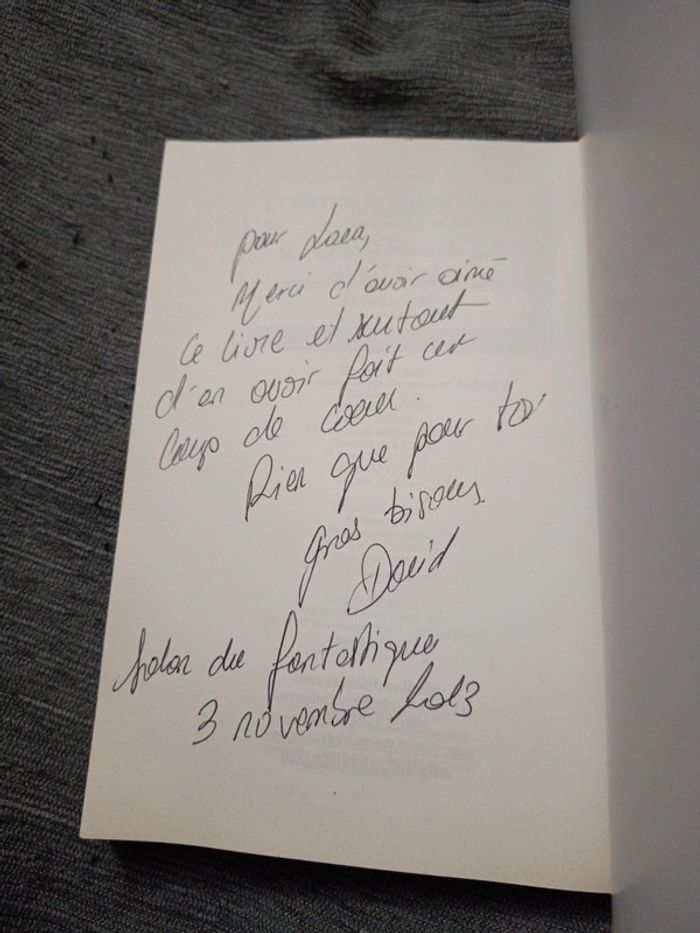 pour Laea,
Merci d'avoir aimé
ce livre et surtout
d'en avoir fait un
Coup de coeur.
Rien que pour toi
gros bisous
David
Salon du fantastique
3 novembre 2013